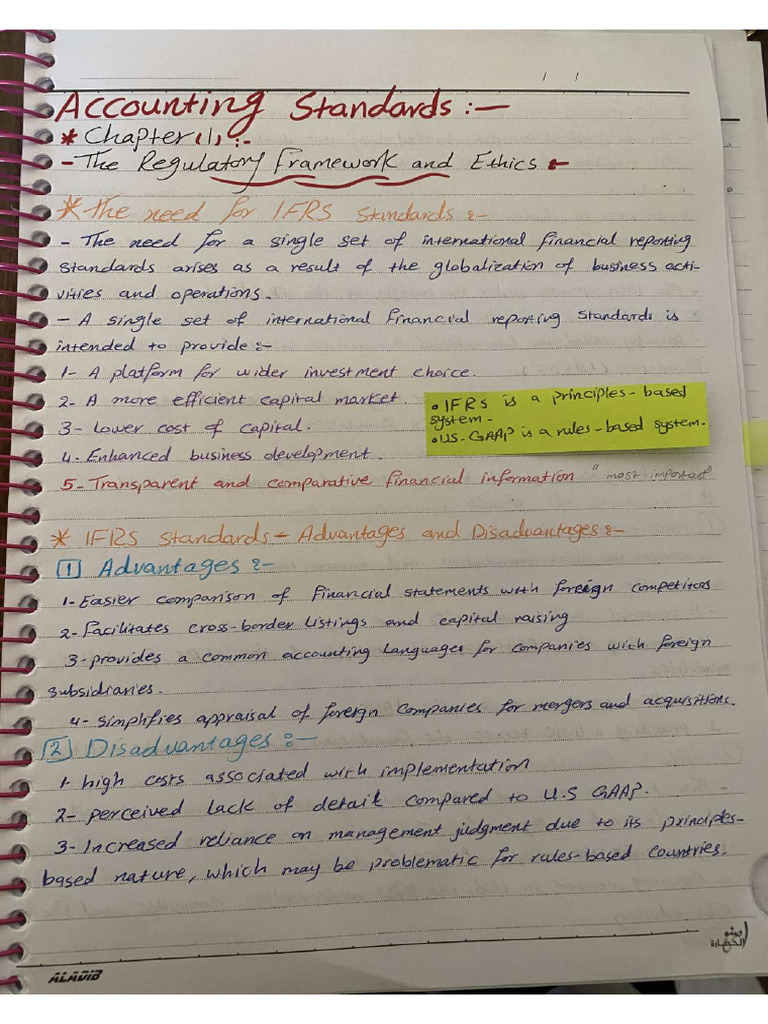 / /
Accounting Standards :-
* Chapter (1) :-
- The Regulatory framework and Ethics :-
* The need for IFRS Standards :-
- The need for a single set of international financial reporting
standards arises as a result of the globalization of business acti-
vities and operations.
- A single set of international financial reporting standards is
intended to provide :-
1- A platform for wider investment choice.
2- A more efficient capital market.
3- lower cost of capital.
4- Enhanced business development.
• IFRS is a principles-based
system.
• US-GAAP is a rules-based system.
5- Transparent and comparative financial information "most important"
* IFRS standards - Advantages and Disadvantages :-
1 Advantages :-
1- Easier comparison of financial statements with foreign competitors
2- facilitates cross-border listings and capital raising
3- provides a common accounting languages for companies with foreign
subsidiaries.
4- simplifies appraisal of foreign companies for mergers and acquisitions.
2 Disadvantages :-
1- high costs associated with implementation
2- perceived lack of detail compared to U.S GAAP.
3- Increased reliance on management judgment due to its principles-
based nature, which may be problematic for rules-based countries.
ALADIB